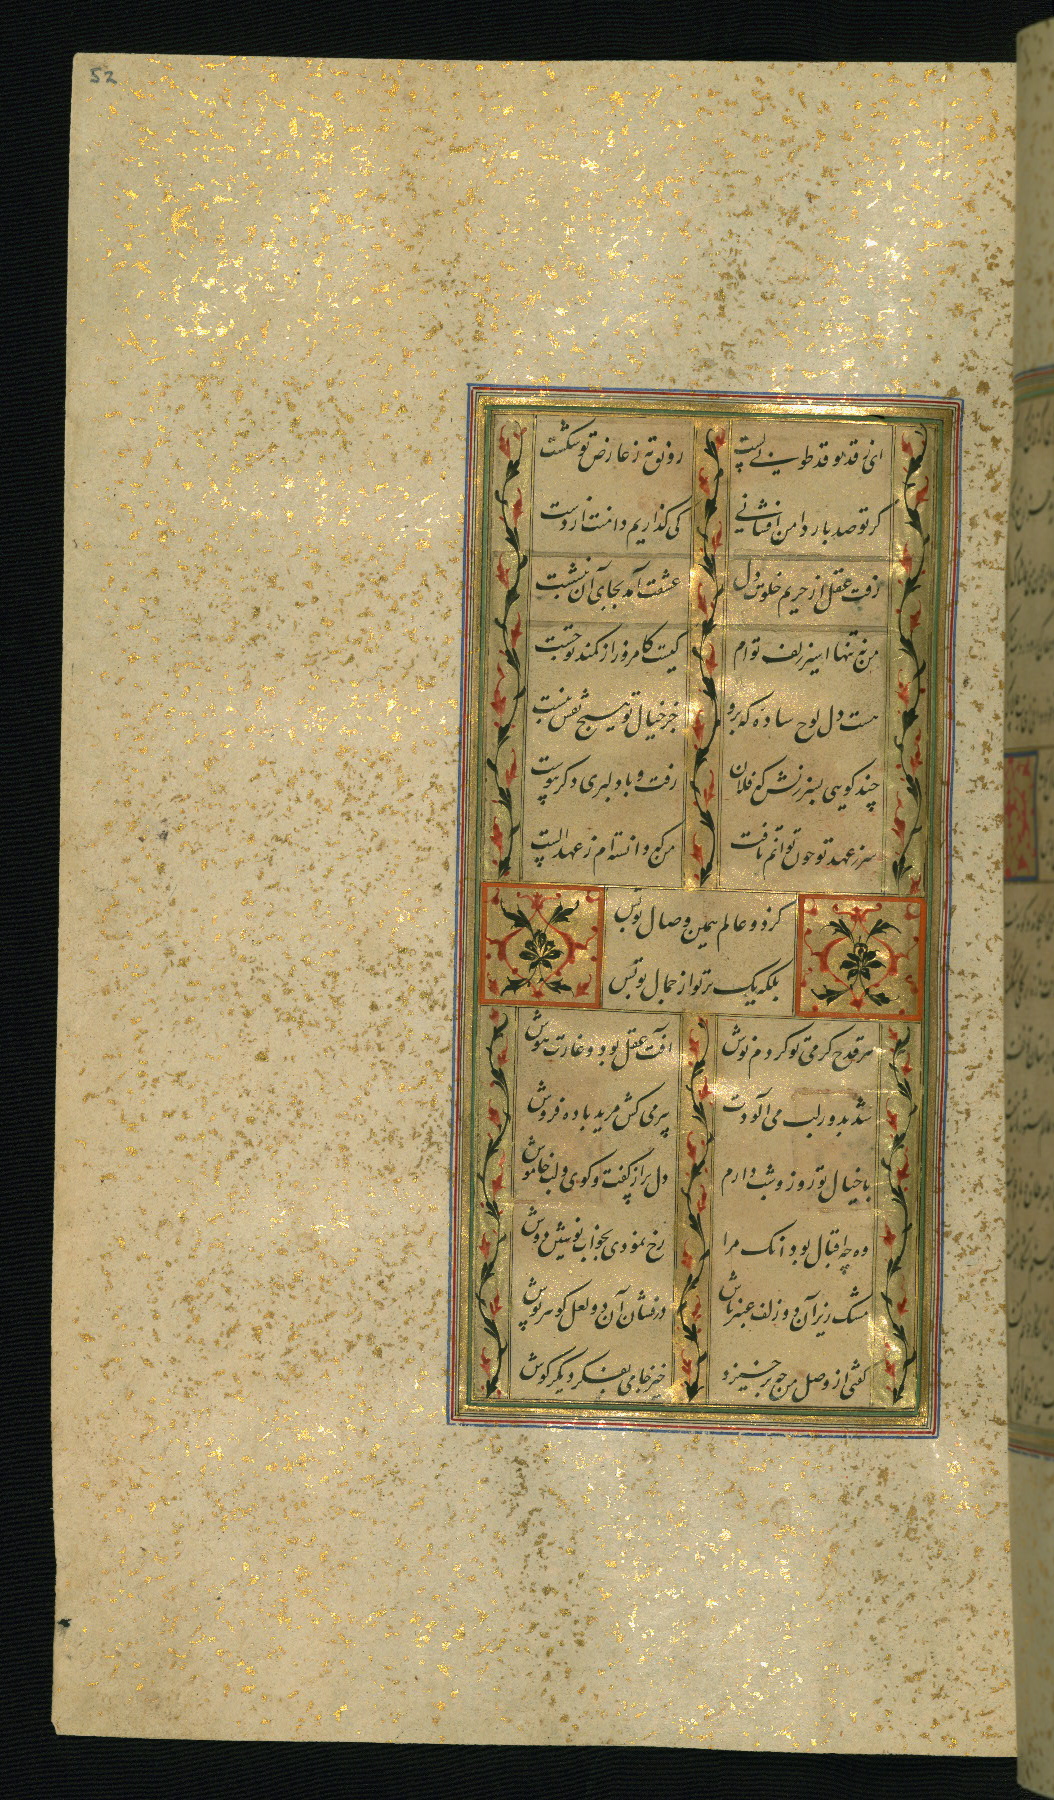 52
ای ز قد تو قد طوبی پست
رونق مه ز عارض تو شکست
گر تو صد بار دامن افشانی
کی گذاریم دامنت از دست
رفت عقل از حریم خلوت دل
عشقت آمد بجای آن بنشست
من نه تنها اسیر زلف توام
کیست کامروز از کمند تو جست
هست دل لوح ساده که برو
جز خیال تو هیچ نقش نبست
چند گویی بسرزنش که فلان
رفت و با دلبری دگر پیوست
سر ز عهد تو چون توانم تافت
من که وابسته ام ز عهد الست
کز دو عالم همین وصال تو بس
بلکه یک پرتو از جمال تو بس
هر قدح کز می تو کردم نوش
آفت عقل بود و غارت هوش
شد بدور لب می آلودت
پیر می کش مرید باده فروش
با خیال تو روز و شب دارم
دل پر از گفت و گوی و لب خاموش
وه چه اقبال بود آنک مرا
رخ نمودی بخواب نوشین دوش
مشک ریز آن دو زلف عنبر پاش
درفشان آن دو لعل گوهر پوش
گفتی از وصل من چو برخیزد
خیز جامی بفکر دیگر کوش